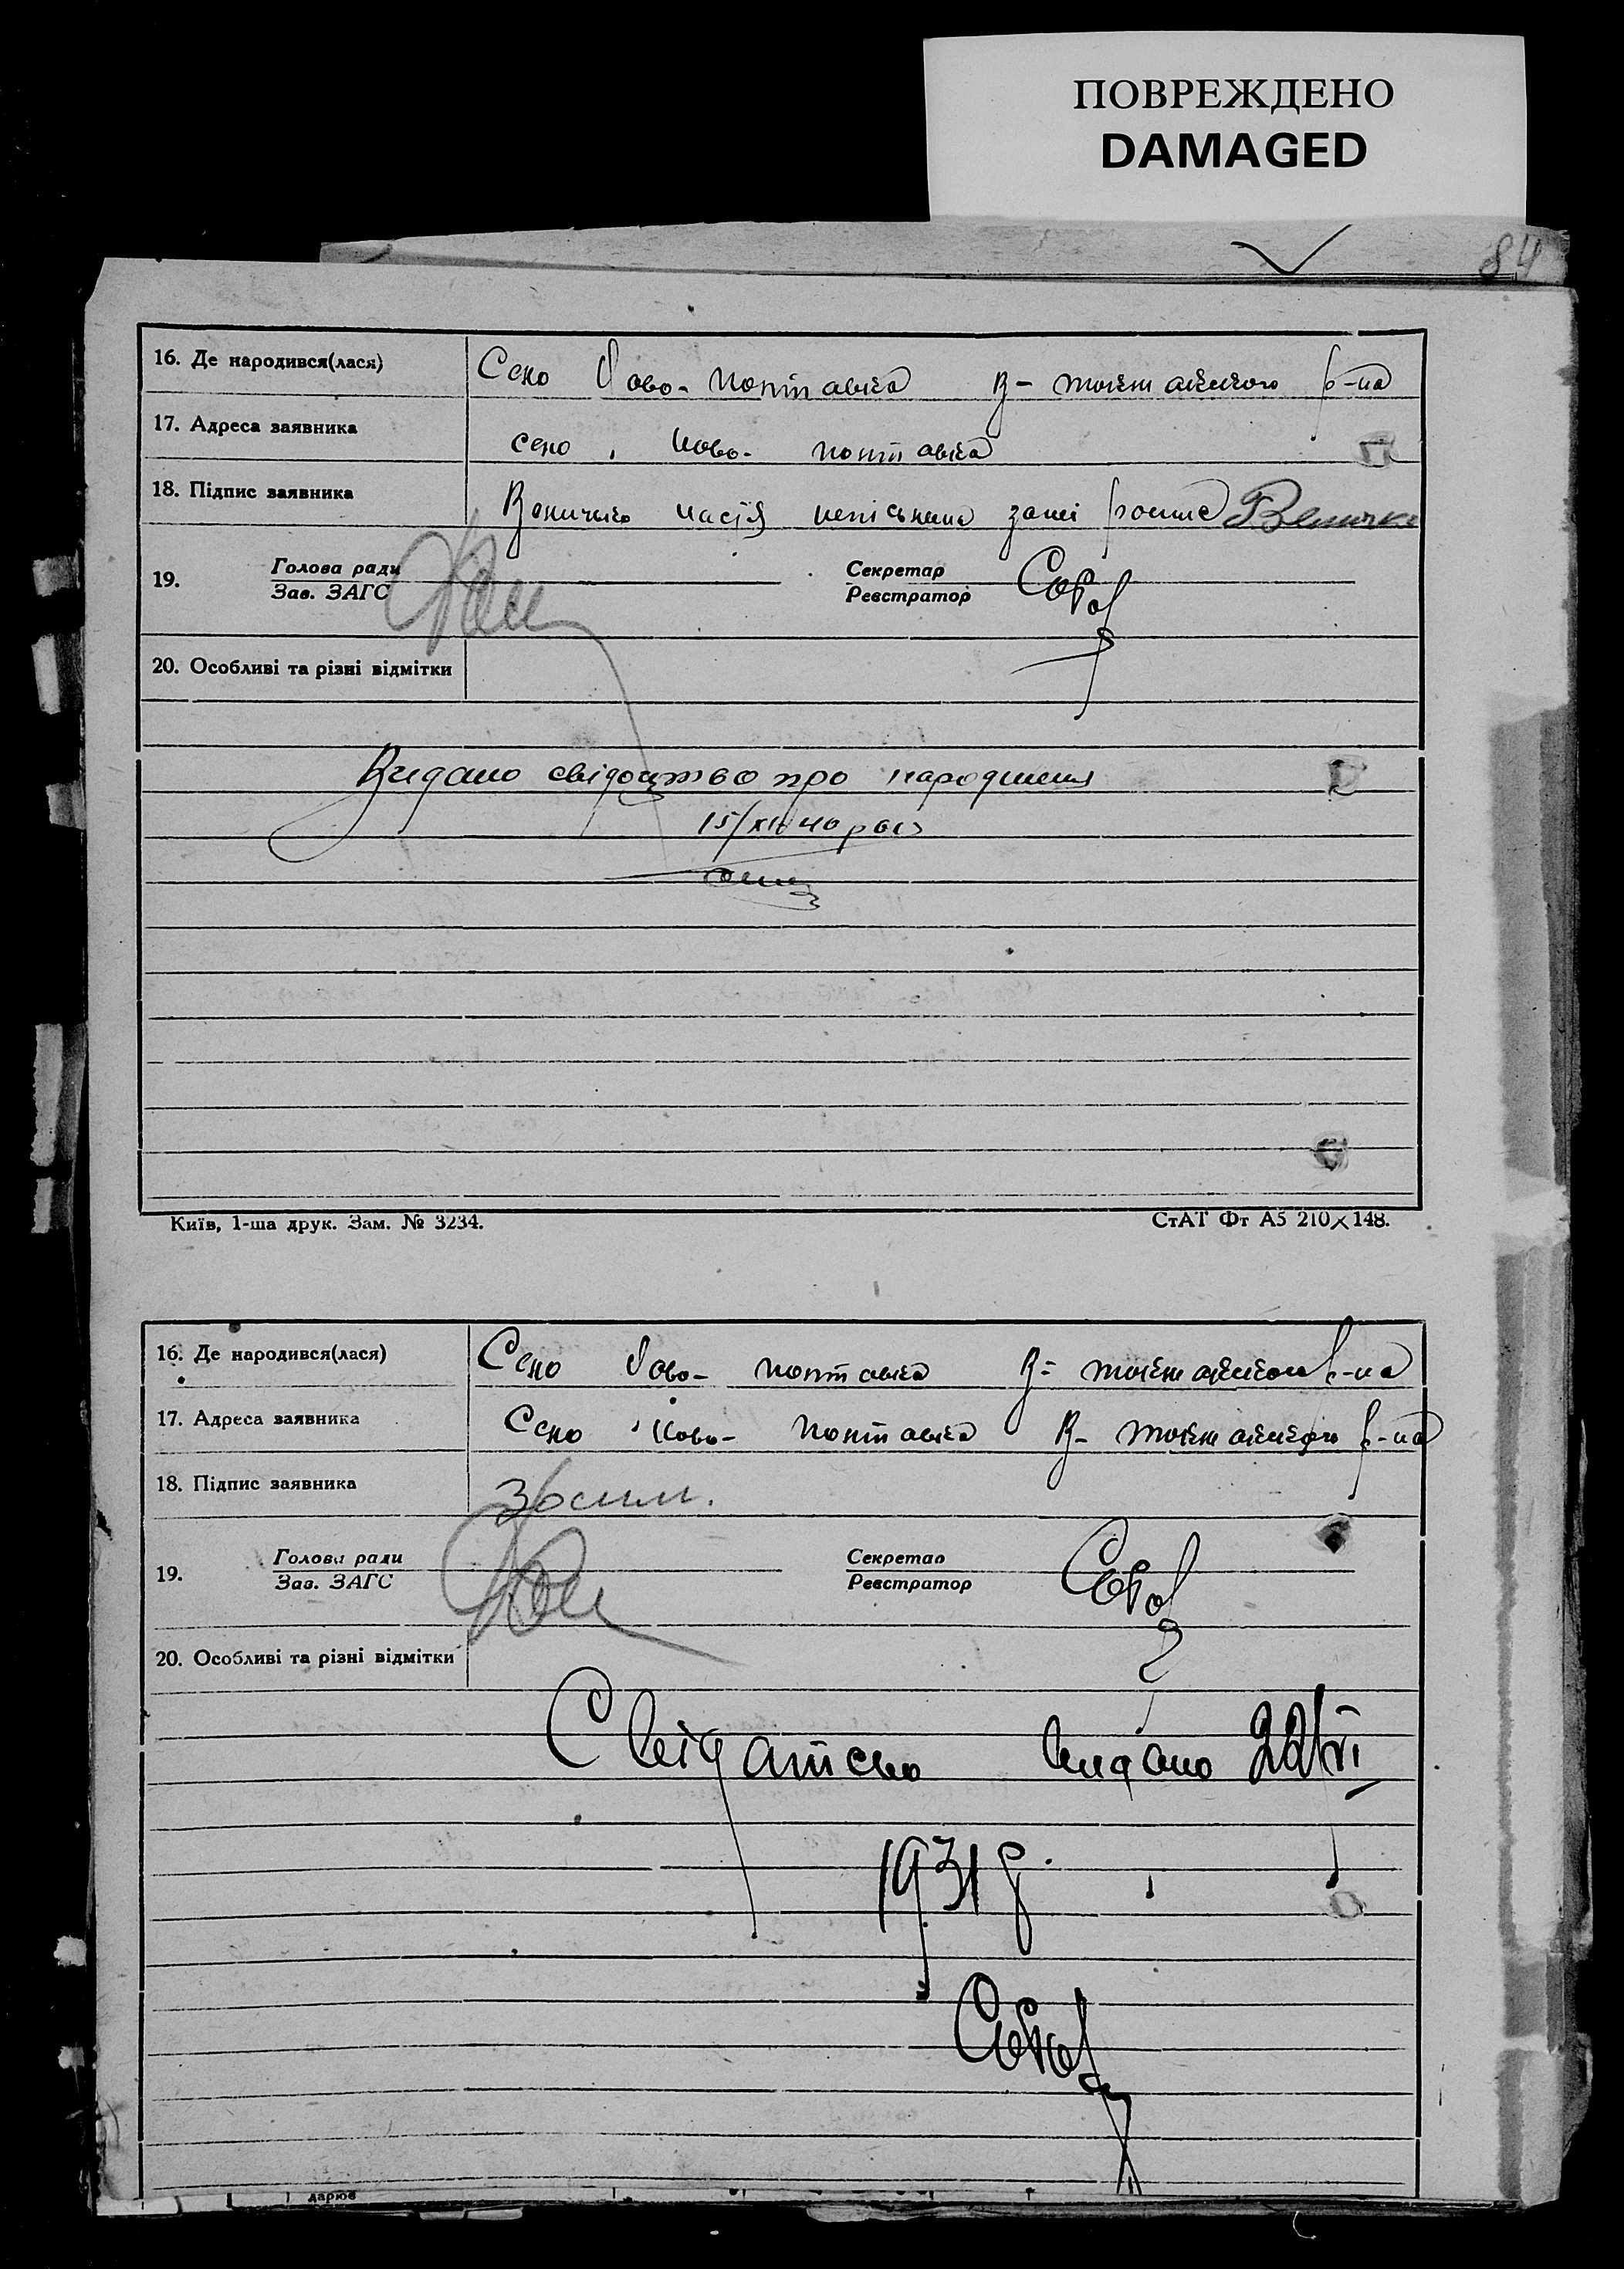 ПОВРЕЖДЕНО
DAMAGED
84
16. Де народився(лася) Село Ново-полтавка В-токмакського р-на
17. Адреса заявника село Ново-полтавка
18. Підпис заявника неписьмена Величко
19. Голова ради Секретар
Зав. ЗАГС Реєстратор
20. Особливі та різні відмітки
Видано свідоцтво про народження
15/XII 40 року
Київ, 1-ша друк. Зам. № 3234. СтАТ Фт А5 210×148.
16. Де народився(лася) Село Ново-полтавка В-токмакського р-на
17. Адреса заявника Село Ново-полтавка В-токмакського р-на
18. Підпис заявника
19. Голова ради Секретар
Зав. ЗАГС Реєстратор
20. Особливі та різні відмітки
Свідатсво видано 22/VI
1931 р.